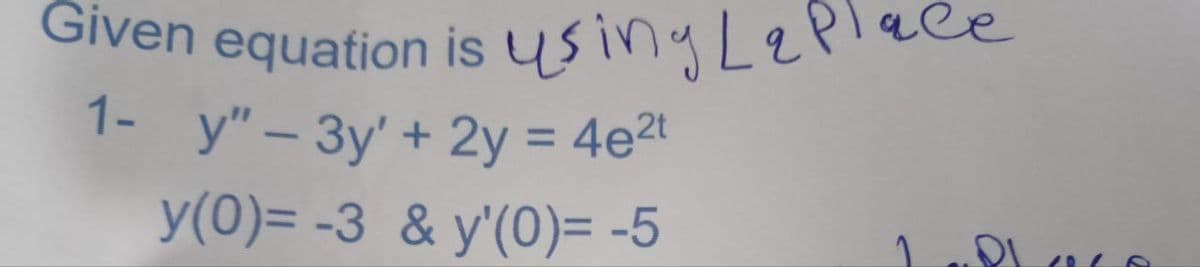 Given equation is using Laplace
1- y" – 3y' + 2y = 4e²ᵗ
y(0)= -3 & y'(0)= -5